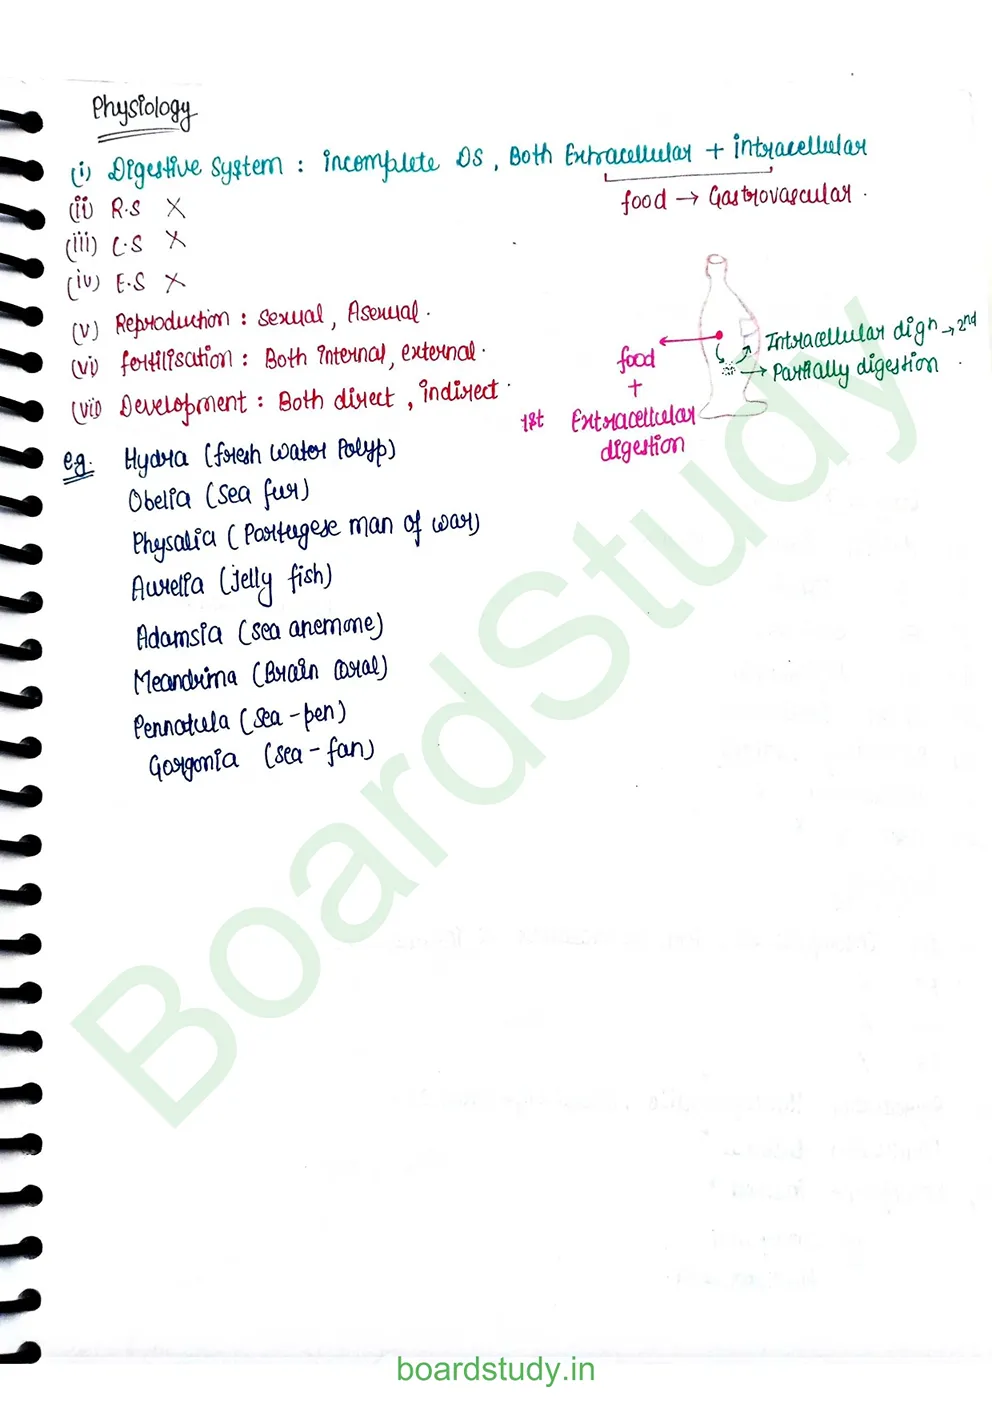 Physiology
(i) Digestive System : incomplete DS, Both Extracellular + intracellular
food → Gastrovascular.
(ii) R.S ✗
(iii) C.S ✗
(iv) E.S ✗
(v) Reproduction : sexual, Asexual.
(vi) fertilisation : Both internal, external.
(vii) Development : Both direct, indirect.
Intracellular digⁿ → 2nd
→ Partially digestion.
food
+
1st Extracellular
digestion
eg. Hydra (fresh water Polyp)
Obelia (Sea fur)
Physalia (Portugese man of war)
Aurelia (jelly fish)
Adamsia (sea anemone)
Meandrina (Brain coral)
Pennatula (sea-pen)
Gorgonia (sea-fan)
BoardStudy
boardstudy.in